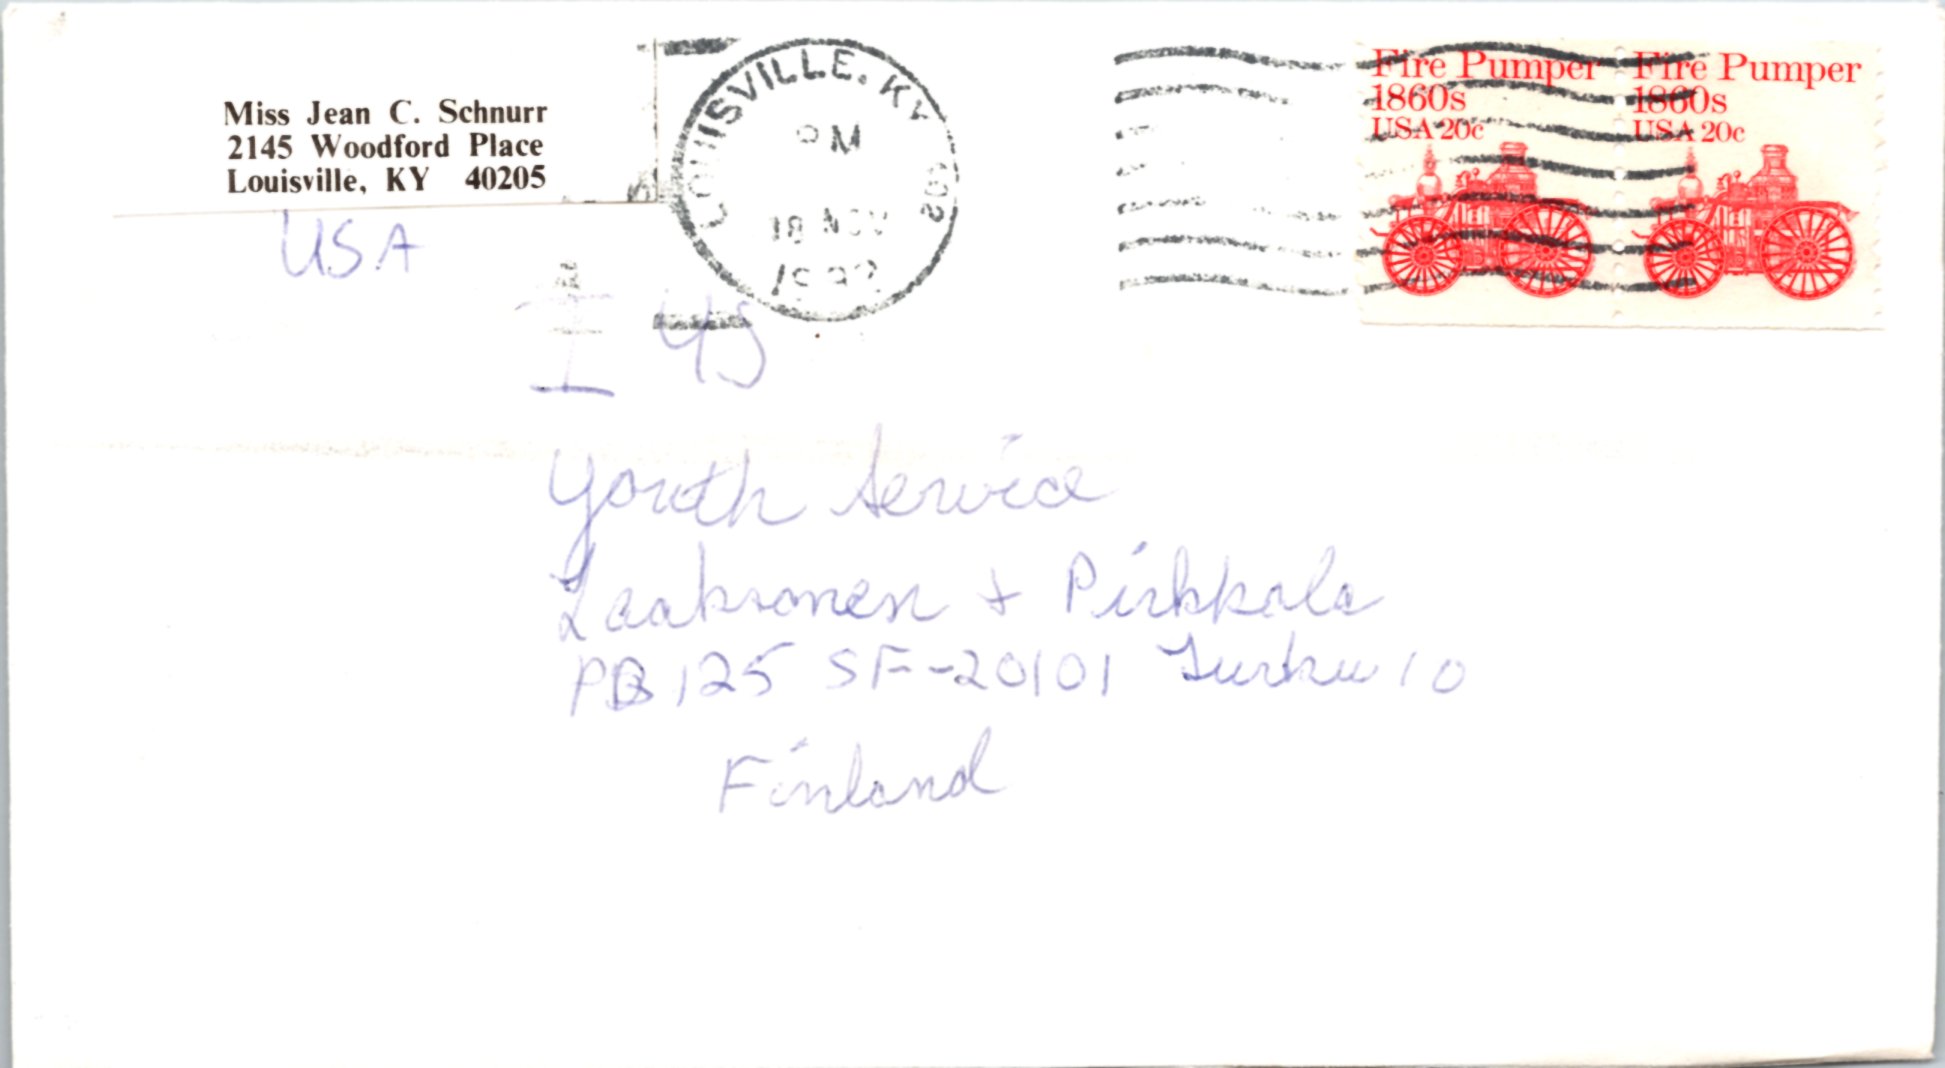 Miss Jean C. Schnurr
2145 Woodford Place
Louisville, KY 40205
USA
LOUISVILLE, KY 402
PM
18 NOV
1992
Fire Pumper
1860s
USA 20c
Fire Pumper
1860s
USA 20c
I 45
Youth Service
Laaksonen + Pirkkala
PB 125 SF-20101 Turku 10
Finland